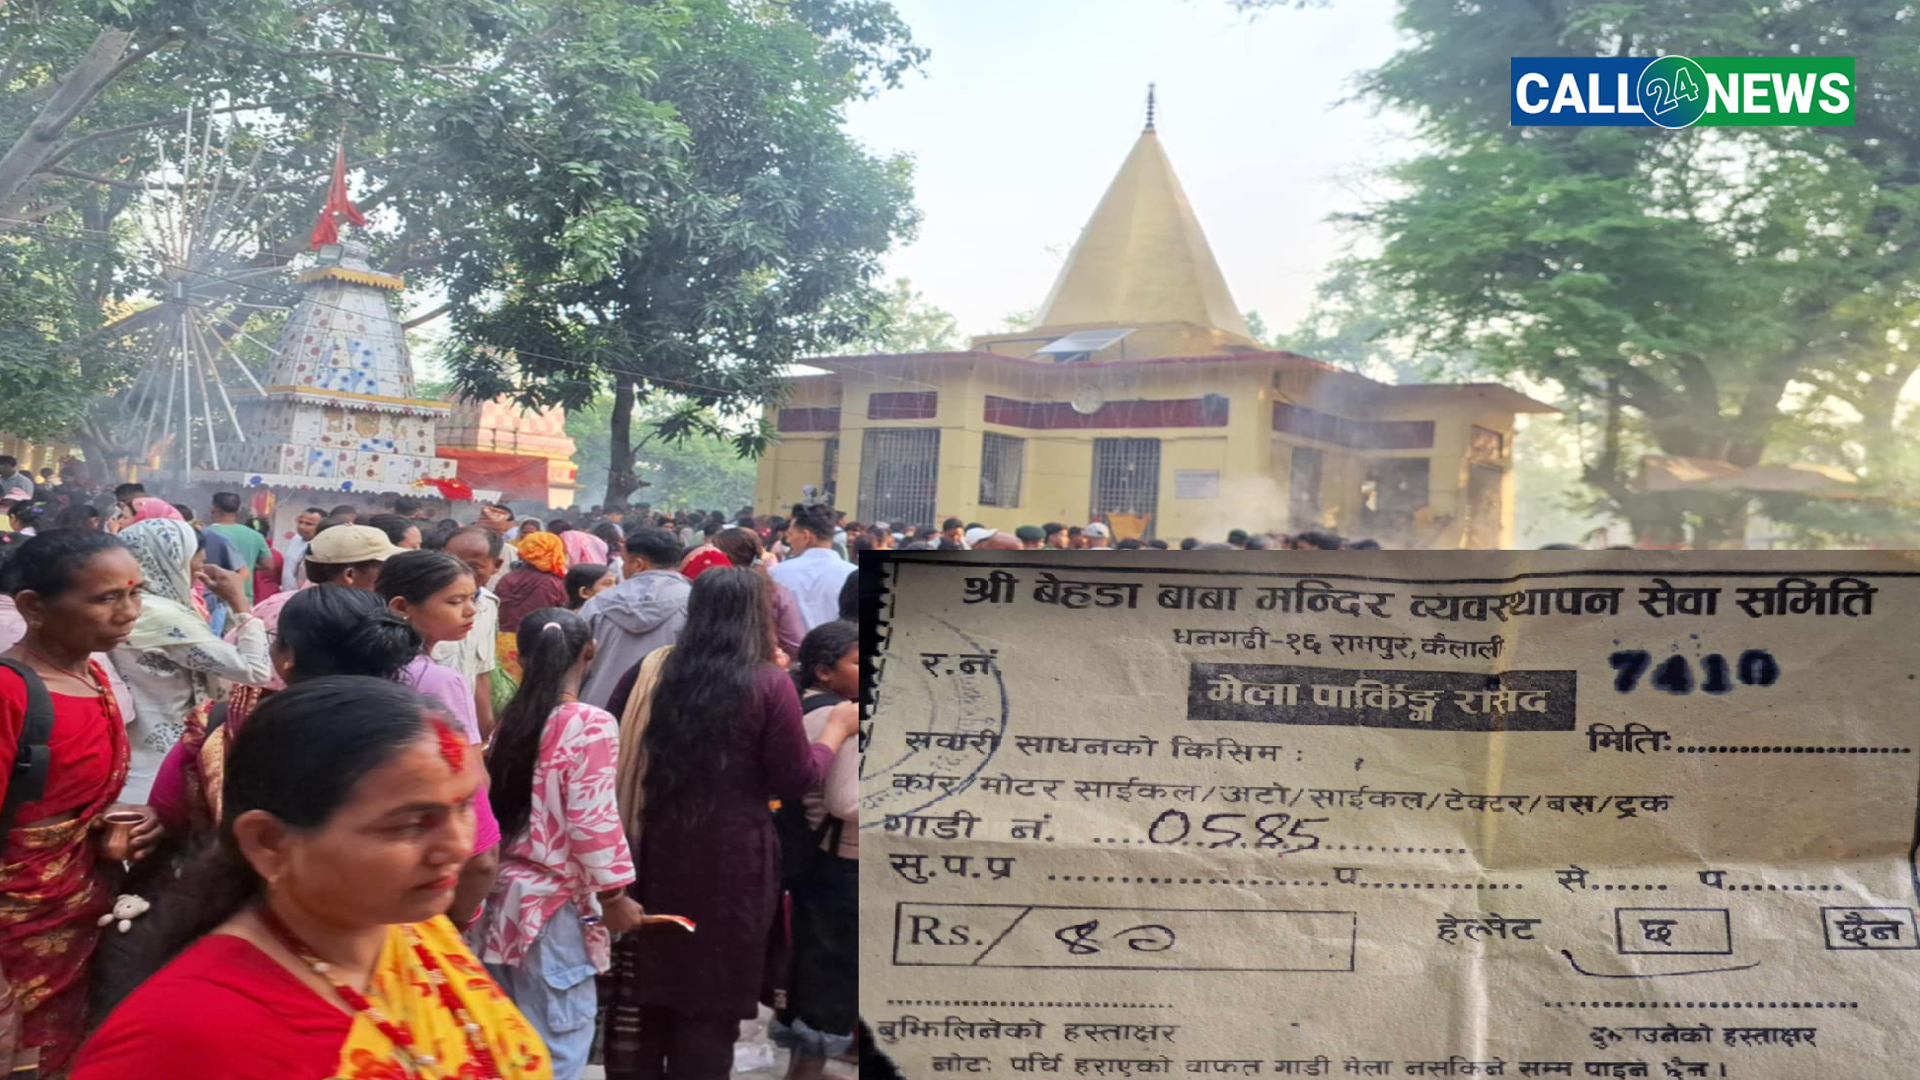 CALL 24 NEWS
श्री बेहडा बाबा मन्दिर व्यवस्थापन सेवा समिति
धनगढी-१६ रामपुर, कैलाली
र.नं
7410
मेला पार्किङ्ग रसिद
मितिः....................
सवारी साधनको किसिम :
कार/मोटर साईकल/अटो/साईकल/टेक्टर/बस/ट्रक
गाडी नं. ....0585............
सु.प.प्र ....................प............ से...... प.........
Rs./ ४०
हेल्मेट छ छैन
बुझिलिनेको हस्ताक्षर
हस्ताक्षर
नोटः पर्चि हराएको वाफत गाडी मेला नसकिने सम्म पाइने छैन।